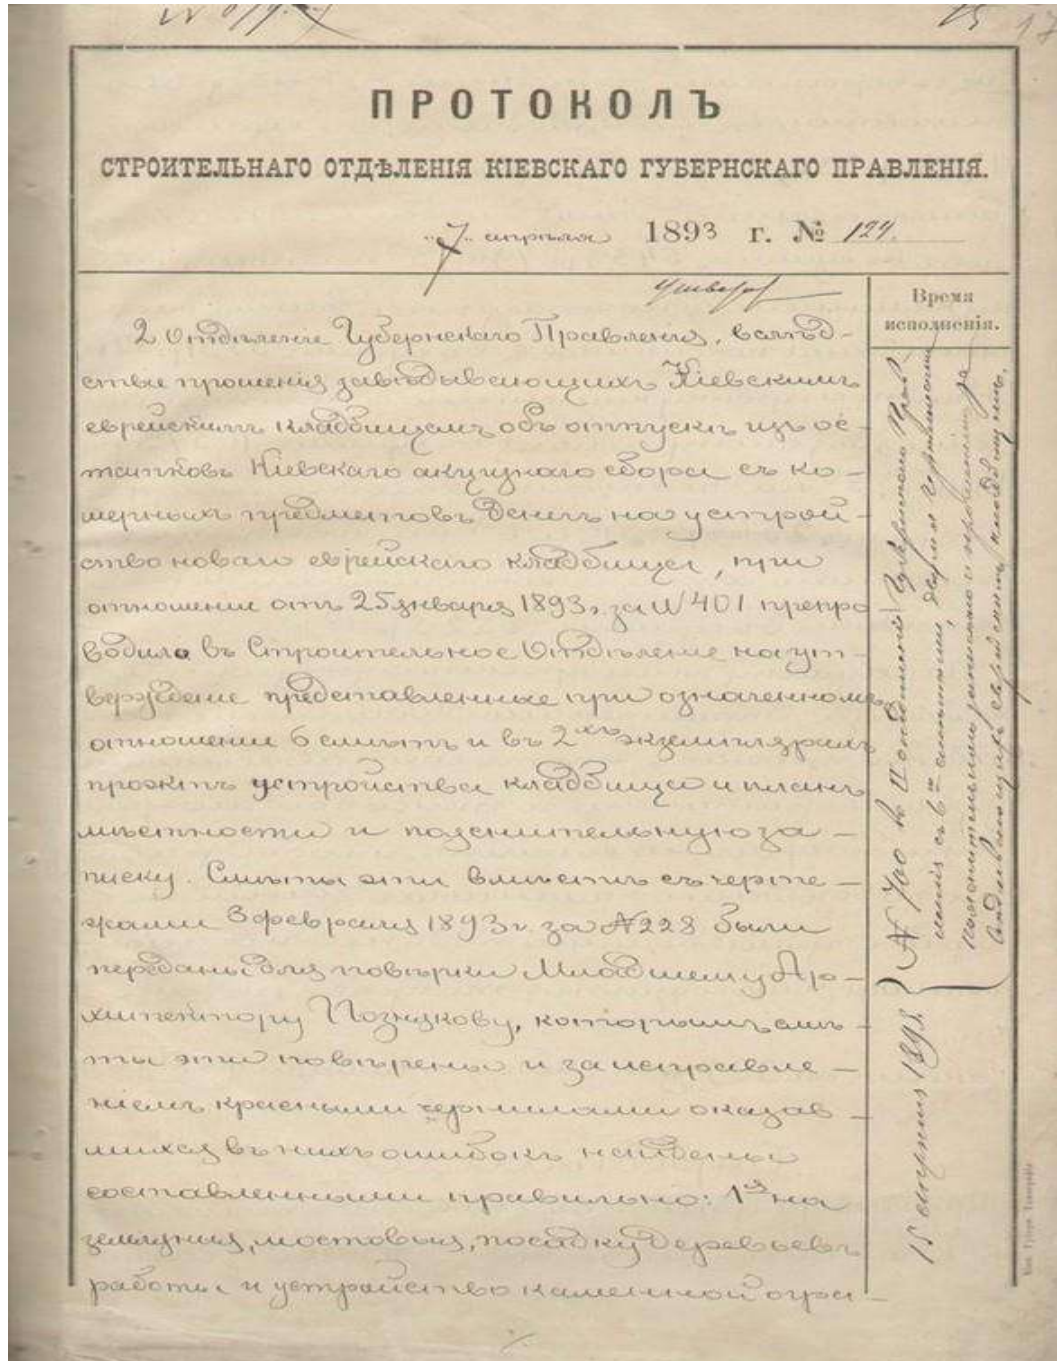 15 17
ПРОТОКОЛЪ
СТРОИТЕЛЬНАГО ОТДѢЛЕНІЯ КІЕВСКАГО ГУБЕРНСКАГО ПРАВЛЕНІЯ.
„7„ апрѣля 1893 г. № 124.
Время
исполненія.
2 Отдѣленіе Губернскаго Правленія, вслѣд-
ствіе прошенія завѣдывающихъ Кіевскимъ
еврейскимъ кладбищемъ объ отпускѣ изъ ос-
татковъ Кіевскаго акцизнаго сбора съ ко-
шерныхъ предметовъ денегъ на устрой-
ство новаго еврейскаго кладбища, при
отношеніи отъ 25 января 1893 г. за № 401 препро
водило въ Строительное Отдѣленіе на ут-
вержденіе представленные при означенномъ
отношеніи 6 смѣтъ и въ 2хъ экземплярахъ
проэктъ устройства кладбища и планъ
мѣстности и пояснительную за-
писку. Смѣты эти вмѣстѣ съ черте-
жами 3 февраля 1893 г. за № 228 были
переданы для повѣрки Младшему Ар-
хитектору Познякову, которымъ смѣ-
ты эти повѣрены и за исправле-
ніемъ красными чернилами оказав-
шихся въ нихъ ошибокъ найдены
составленными правильно: 1я на
земляныя, мостовыя, посадку деревьевъ
работы и устройство каменной огра-
15 августа 1893.
№ 700 во II отдѣленіе Губернскаго Прав
ленія съ 6ю смѣтами, двумя чертежами
пояснительною запискою и прошеніемъ за
вѣдывающихъ еврейскимъ кладбищемъ.